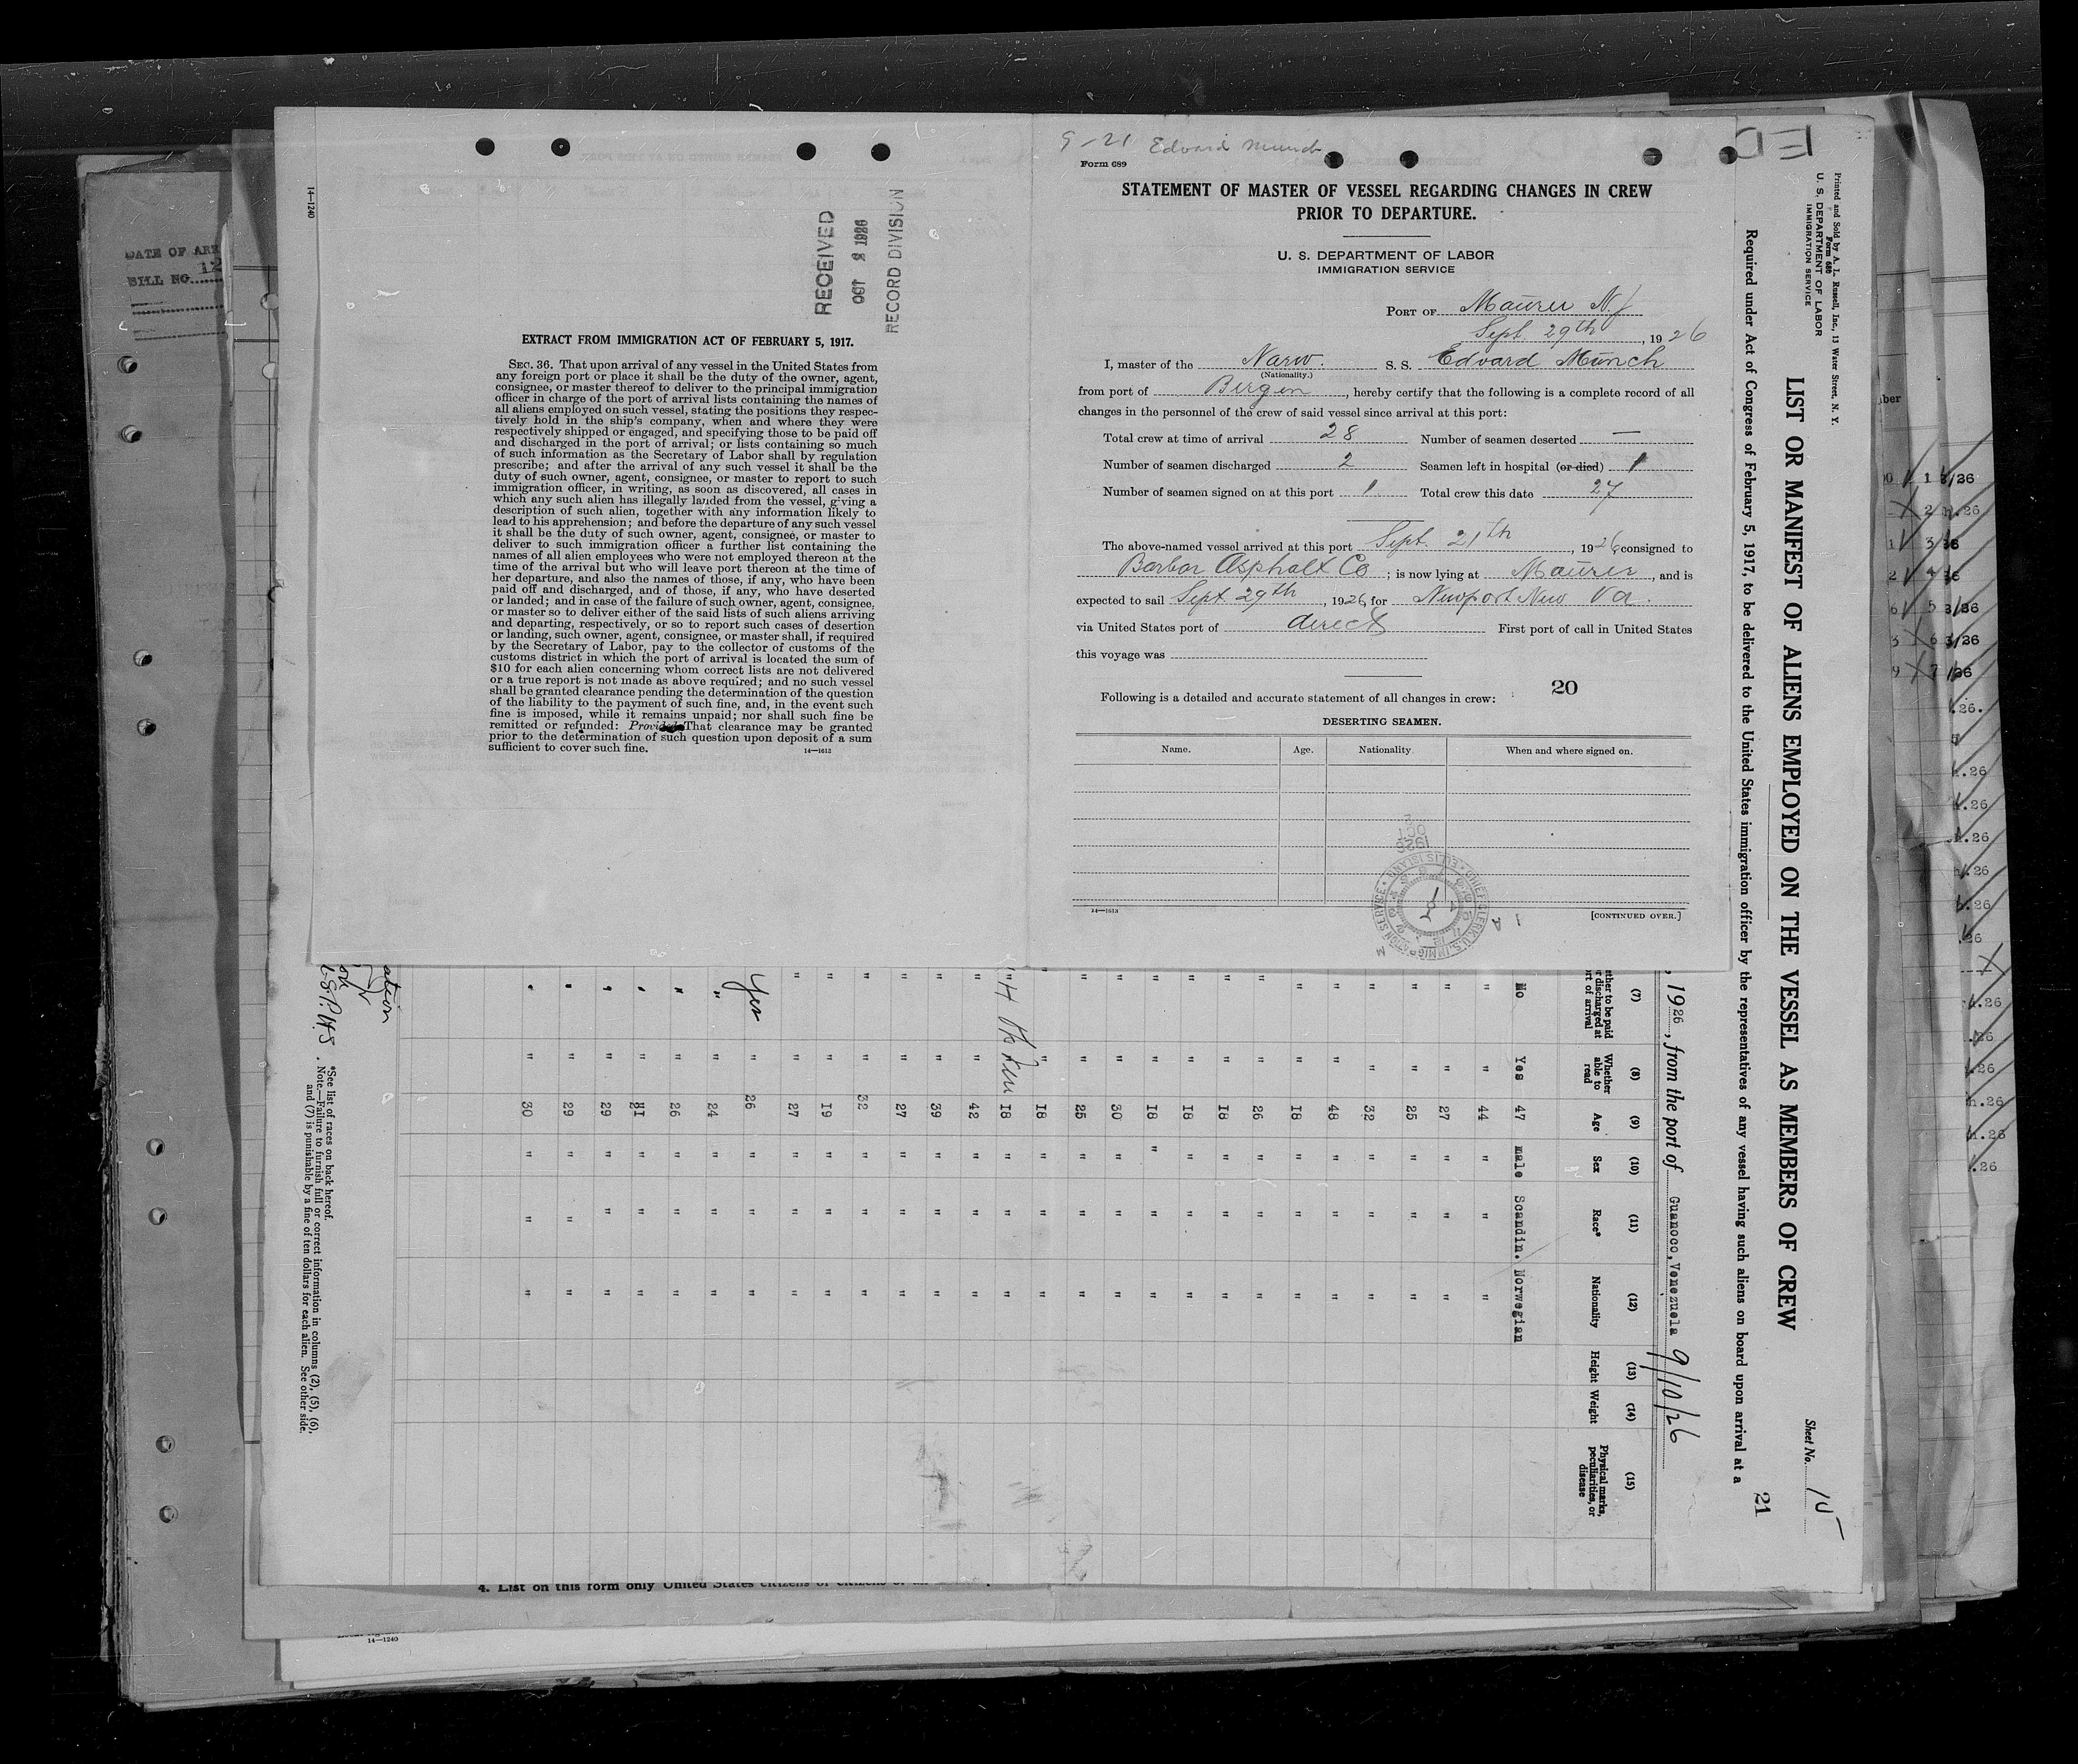 14—1240
RECEIVED
OCT 2 1926
RECORD DIVISION
EXTRACT FROM IMMIGRATION ACT OF FEBRUARY 5, 1917.
SEC. 36. That upon arrival of any vessel in the United States from
any foreign port or place it shall be the duty of the owner, agent,
consignee, or master thereof to deliver to the principal immigration
officer in charge of the port of arrival lists containing the names of
all aliens employed on such vessel, stating the positions they respec-
tively hold in the ship's company, when and where they were
respectively shipped or engaged, and specifying those to be paid off
and discharged in the port of arrival; or lists containing so much
of such information as the Secretary of Labor shall by regulation
prescribe; and after the arrival of any such vessel it shall be the
duty of such owner, agent, consignee, or master to report to such
immigration officer, in writing, as soon as discovered, all cases in
which any such alien has illegally landed from the vessel, giving a
description of such alien, together with any information likely to
lead to his apprehension; and before the departure of any such vessel
it shall be the duty of such owner, agent, consignee, or master to
deliver to such immigration officer a further list containing the
names of all alien employees who were not employed thereon at the
time of the arrival but who will leave port thereon at the time of
her departure, and also the names of those, if any, who have been
paid off and discharged, and of those, if any, who have deserted
or landed; and in case of the failure of such owner, agent, consignee,
or master so to deliver either of the said lists of such aliens arriving
and departing, respectively, or so to report such cases of desertion
or landing, such owner, agent, consignee, or master shall, if required
by the Secretary of Labor, pay to the collector of customs of the
customs district in which the port of arrival is located the sum of
$10 for each alien concerning whom correct lists are not delivered
or a true report is not made as above required; and no such vessel
shall be granted clearance pending the determination of the question
of the liability to the payment of such fine, and, in the event such
fine is imposed, while it remains unpaid; nor shall such fine be
remitted or refunded: Provided, That clearance may be granted
prior to the determination of such question upon deposit of a sum
sufficient to cover such fine.
14—1613
9-21 Edvard Munch
Form 689
STATEMENT OF MASTER OF VESSEL REGARDING CHANGES IN CREW
PRIOR TO DEPARTURE.
U. S. DEPARTMENT OF LABOR
IMMIGRATION SERVICE
PORT OF Maurer N.J
Sept. 29th, 1926
I, master of the Narw. S. S. Edvard Munch
(Nationality.)
from port of Bergen, hereby certify that the following is a complete record of all
changes in the personnel of the crew of said vessel since arrival at this port:
Total crew at time of arrival 28 Number of seamen deserted —
Number of seamen discharged 2 Seamen left in hospital (or died) 1
Number of seamen signed on at this port 1 Total crew this date 27
The above-named vessel arrived at this port Sept. 21th, 1926, consigned to
Barbar Asphalt Co; is now lying at Maurer, and is
expected to sail Sept. 29th, 1926, for Newport New Va.
via United States port of direct First port of call in United States
this voyage was
Following is a detailed and accurate statement of all changes in crew:
20
DESERTING SEAMEN.
Name. Age. Nationality. When and where signed on.
14—1613
[CONTINUED OVER.]
1926
OCT
2
CHIEF CLERK U.S. IMMIGRATION SERVICE ELLIS ISLAND
Printed and Sold by A. L. Russell, Inc., 13 Water Street, N. Y.
Form 680
U. S. DEPARTMENT OF LABOR
IMMIGRATION SERVICE
Sheet No.
LIST OR MANIFEST OF ALIENS EMPLOYED ON THE VESSEL AS MEMBERS OF CREW
21
Required under Act of Congress of February 5, 1917, to be delivered to the United States immigration officer by the representatives of any vessel having such aliens on board upon arrival at a
, 1926, from the port of Guanoco, Venezuela 9/10/26
(7) (8) (9) (10) (11) (12) (13) (14) (15)
Whether able to read
Age
Sex
Race*
Nationality
Height
Weight
Physical marks, peculiarities, or disease
No Yes 47 male Scandin. Norwegian
" " 44 " " "
" " 27 " " "
" " 25 " " "
" " 32 " " "
" " 48 " " "
" " 18 " " "
" " 26 " " "
" " 18 " " "
" " 18 " " "
" " 18 " " "
" " 30 " " "
" " 25 " " "
" " 18 " " "
" 18 " " "
" " 42 " " "
" " 39 " " "
" " 27 " " "
" " 32 " " "
" " 19 " " "
" " 27 " " "
Yes " 26 " " "
" " 24 " " "
" " 26 " " "
" " 21 " " "
" " 29 " " "
" " 29 " " "
" " 30 " " "
*See list of races on back hereof.
Note.—Failure to furnish full or correct information in columns (2), (5), (6),
and (7) is punishable by a fine of ten dollars for each alien. See other side.
DATE OF ARR
BILL NO. 12
4. List on this form only United States citizens or citizens of
14—1240